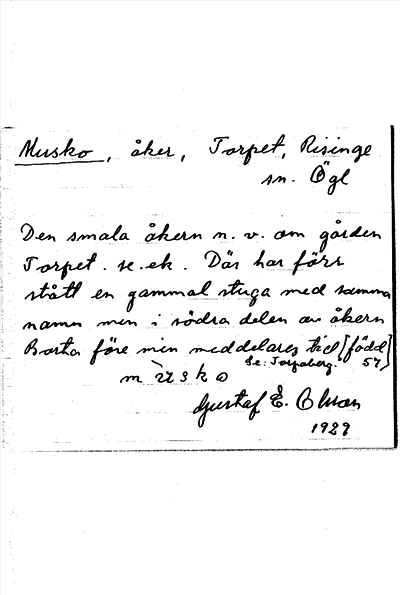 Musko, åker, Torpet, Risinge
sn. Ögl
Den smala åkern n.v. om gården
Torpet. se. ek. Där har förr
stått en gammal stuga med samma
namn men i södra delen av åkern
Borta före min meddelares tid [född
Se: Torpaberg. 57]
Gustaf E. Olsson
1929